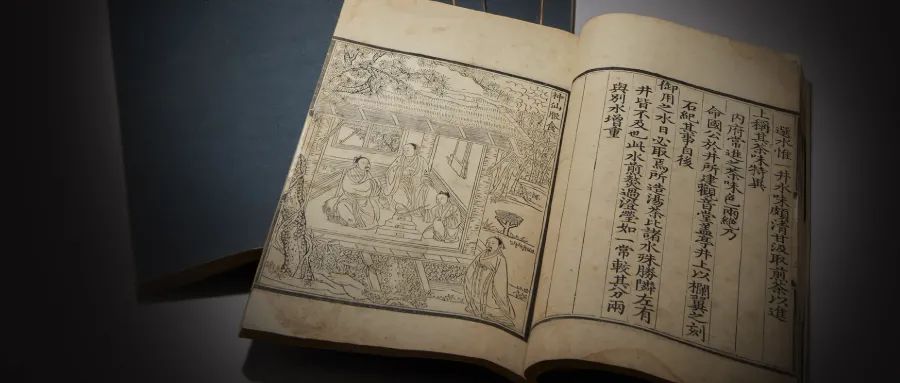 選水惟一井水味頗清甘汲取煎茶以進
上稱其茶味特異
内府常進之茶味色兩絶乃
命國公於井所建觀音堂蓋亭井上以欄翼之刻
石紀其事自後
御用之水日必取焉所造湯茶比諸水殊勝隣左有
井皆不及也此水煎熬過澄瑩如一常較其分兩
與別水增重
神仙服食